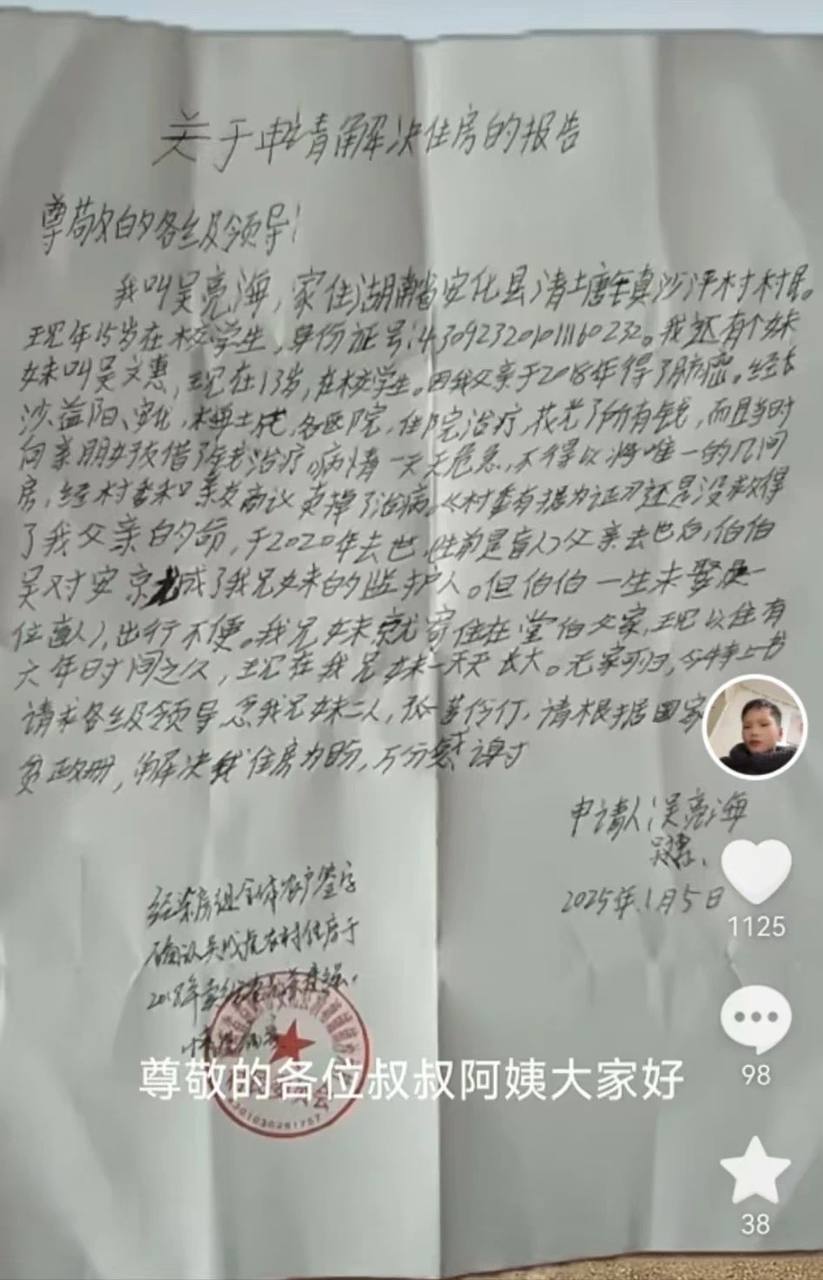 关于申请解决住房的报告
尊敬的各级领导!
我叫吴亮海,家住湖南省安化县清塘镇沙坪村村民。
现年15岁在校学生,身份证号:430923201011160232。我还有个妹
妹叫吴文惠,现在13岁,在校学生。因我父亲于2018年得了肺癌。经长
沙、益阳、安化,各医院,住院治疗,花光了所有钱,而且当时
向亲朋好友借了钱治疗,病情一天天危急,不得以将唯一的几间
房,经村委和亲友商议卖掉了治病。(村委有据为证)还是没救得
了我父亲的命,于2020年去世,(生前是盲人)父亲去世后,伯伯
吴对安就成了我兄妹的监护人。但伯伯一生未娶是一
位盲人,出行不便。我兄妹就寄住在堂伯父家,现以住有
六年时间之久,现在我兄妹一天天长大。无家可归,今特上书
请求各级领导念我兄妹二人,孤苦伶仃,请根据国家
贫政册,解决我住房为盼,万分感谢!
申请人:吴亮海
2025年1月5日
经梁房组全体农户签字
确认吴 农村住房于
2018年
尊敬的各位叔叔阿姨大家好
1125
98
38